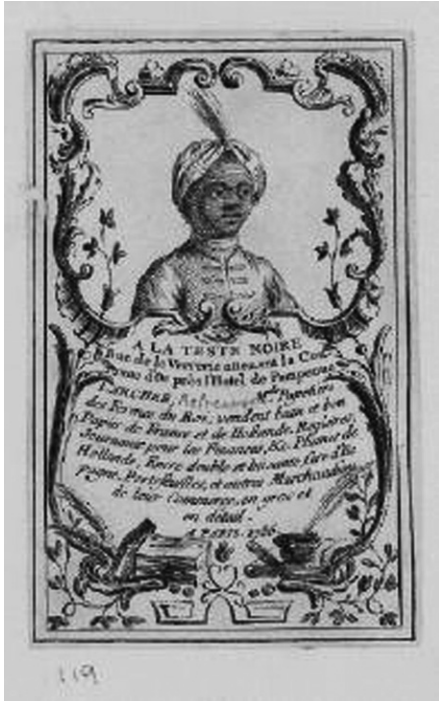 A LA TESTE NOIRE
Rue de la Verrerie attenant la
d'Or près l'Hotel de Pompone
LARCHER, Mds. Papetiers
des Fermes du Roy, vendent beau et bon
Papier de France et de Hollande, Registres,
Journaux pour les Finances, &c. Plumes de
Hollande, Encre double et luisante, Cire d'Es
pagne, Portefeuilles, et autres Marchandises
de leur Commerce, en gros et
en détail.
A PARIS. 1736
119